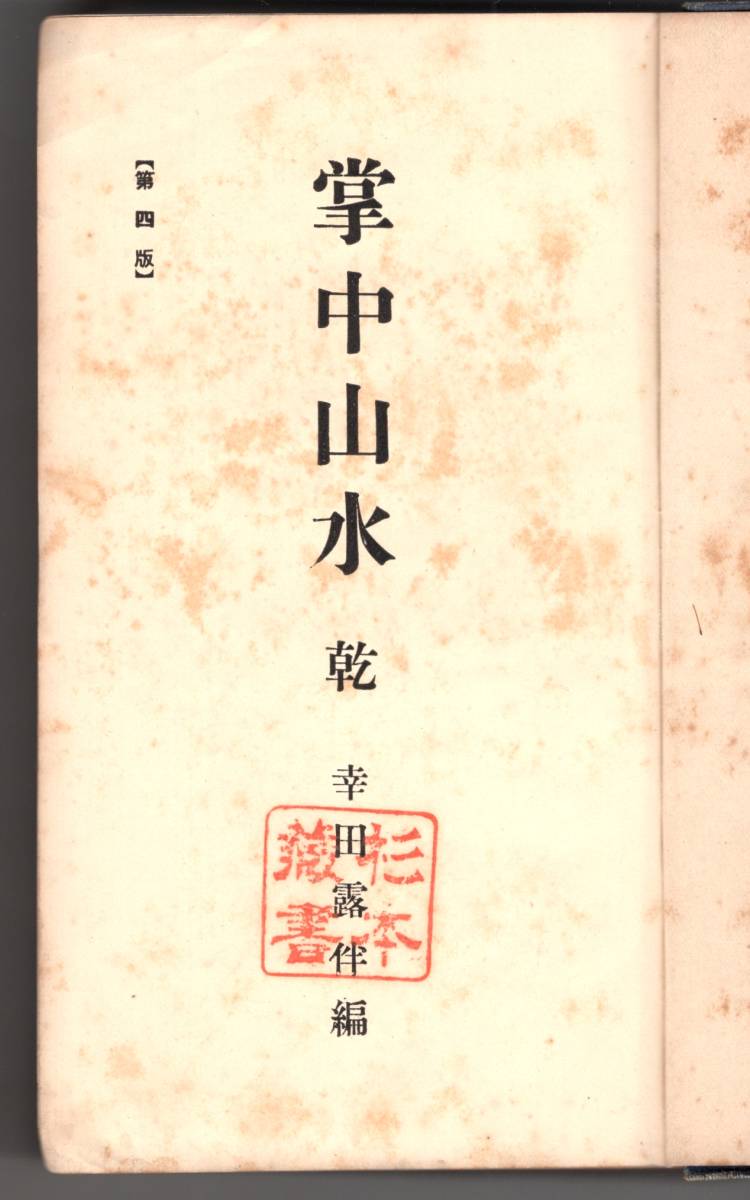 掌中山水 乾 幸田露伴編
【第四版】
杉本
藏書